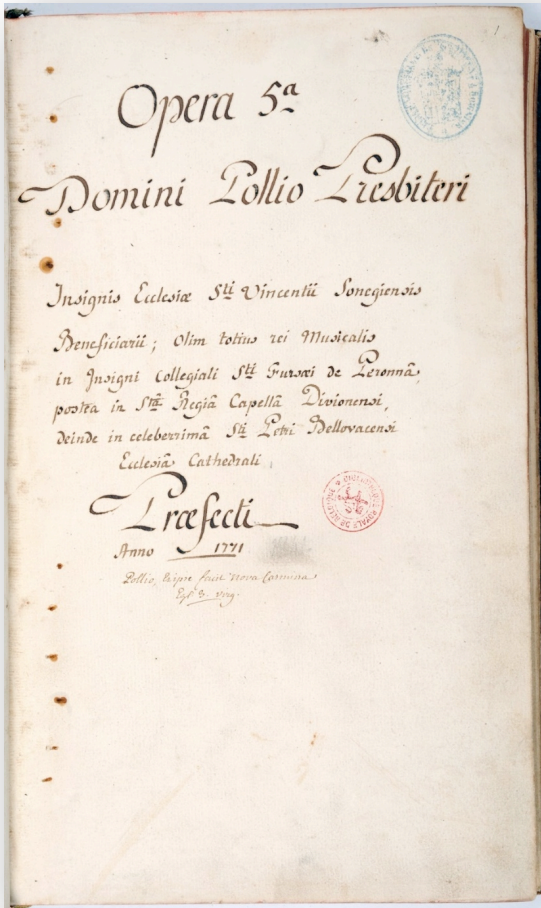 1
Opera 5ª
Domini Pollio Presbiteri
Insignis Ecclesiæ Sti Vincentii Sonegiensis
Beneficiarii; olim totius rei Musicalis
in Insigni Collegiali Sti Fursæi de Peronnâ,
postea in Stâ Regiâ Capellâ Divionensi,
deinde in celeberrimâ Sti Petri Bellovacensi
Ecclesiâ Cathedrali,
Præfecti
Anno 1771
Pollio, & ipse facit Nova Carmina
Egl. 3. Virg.